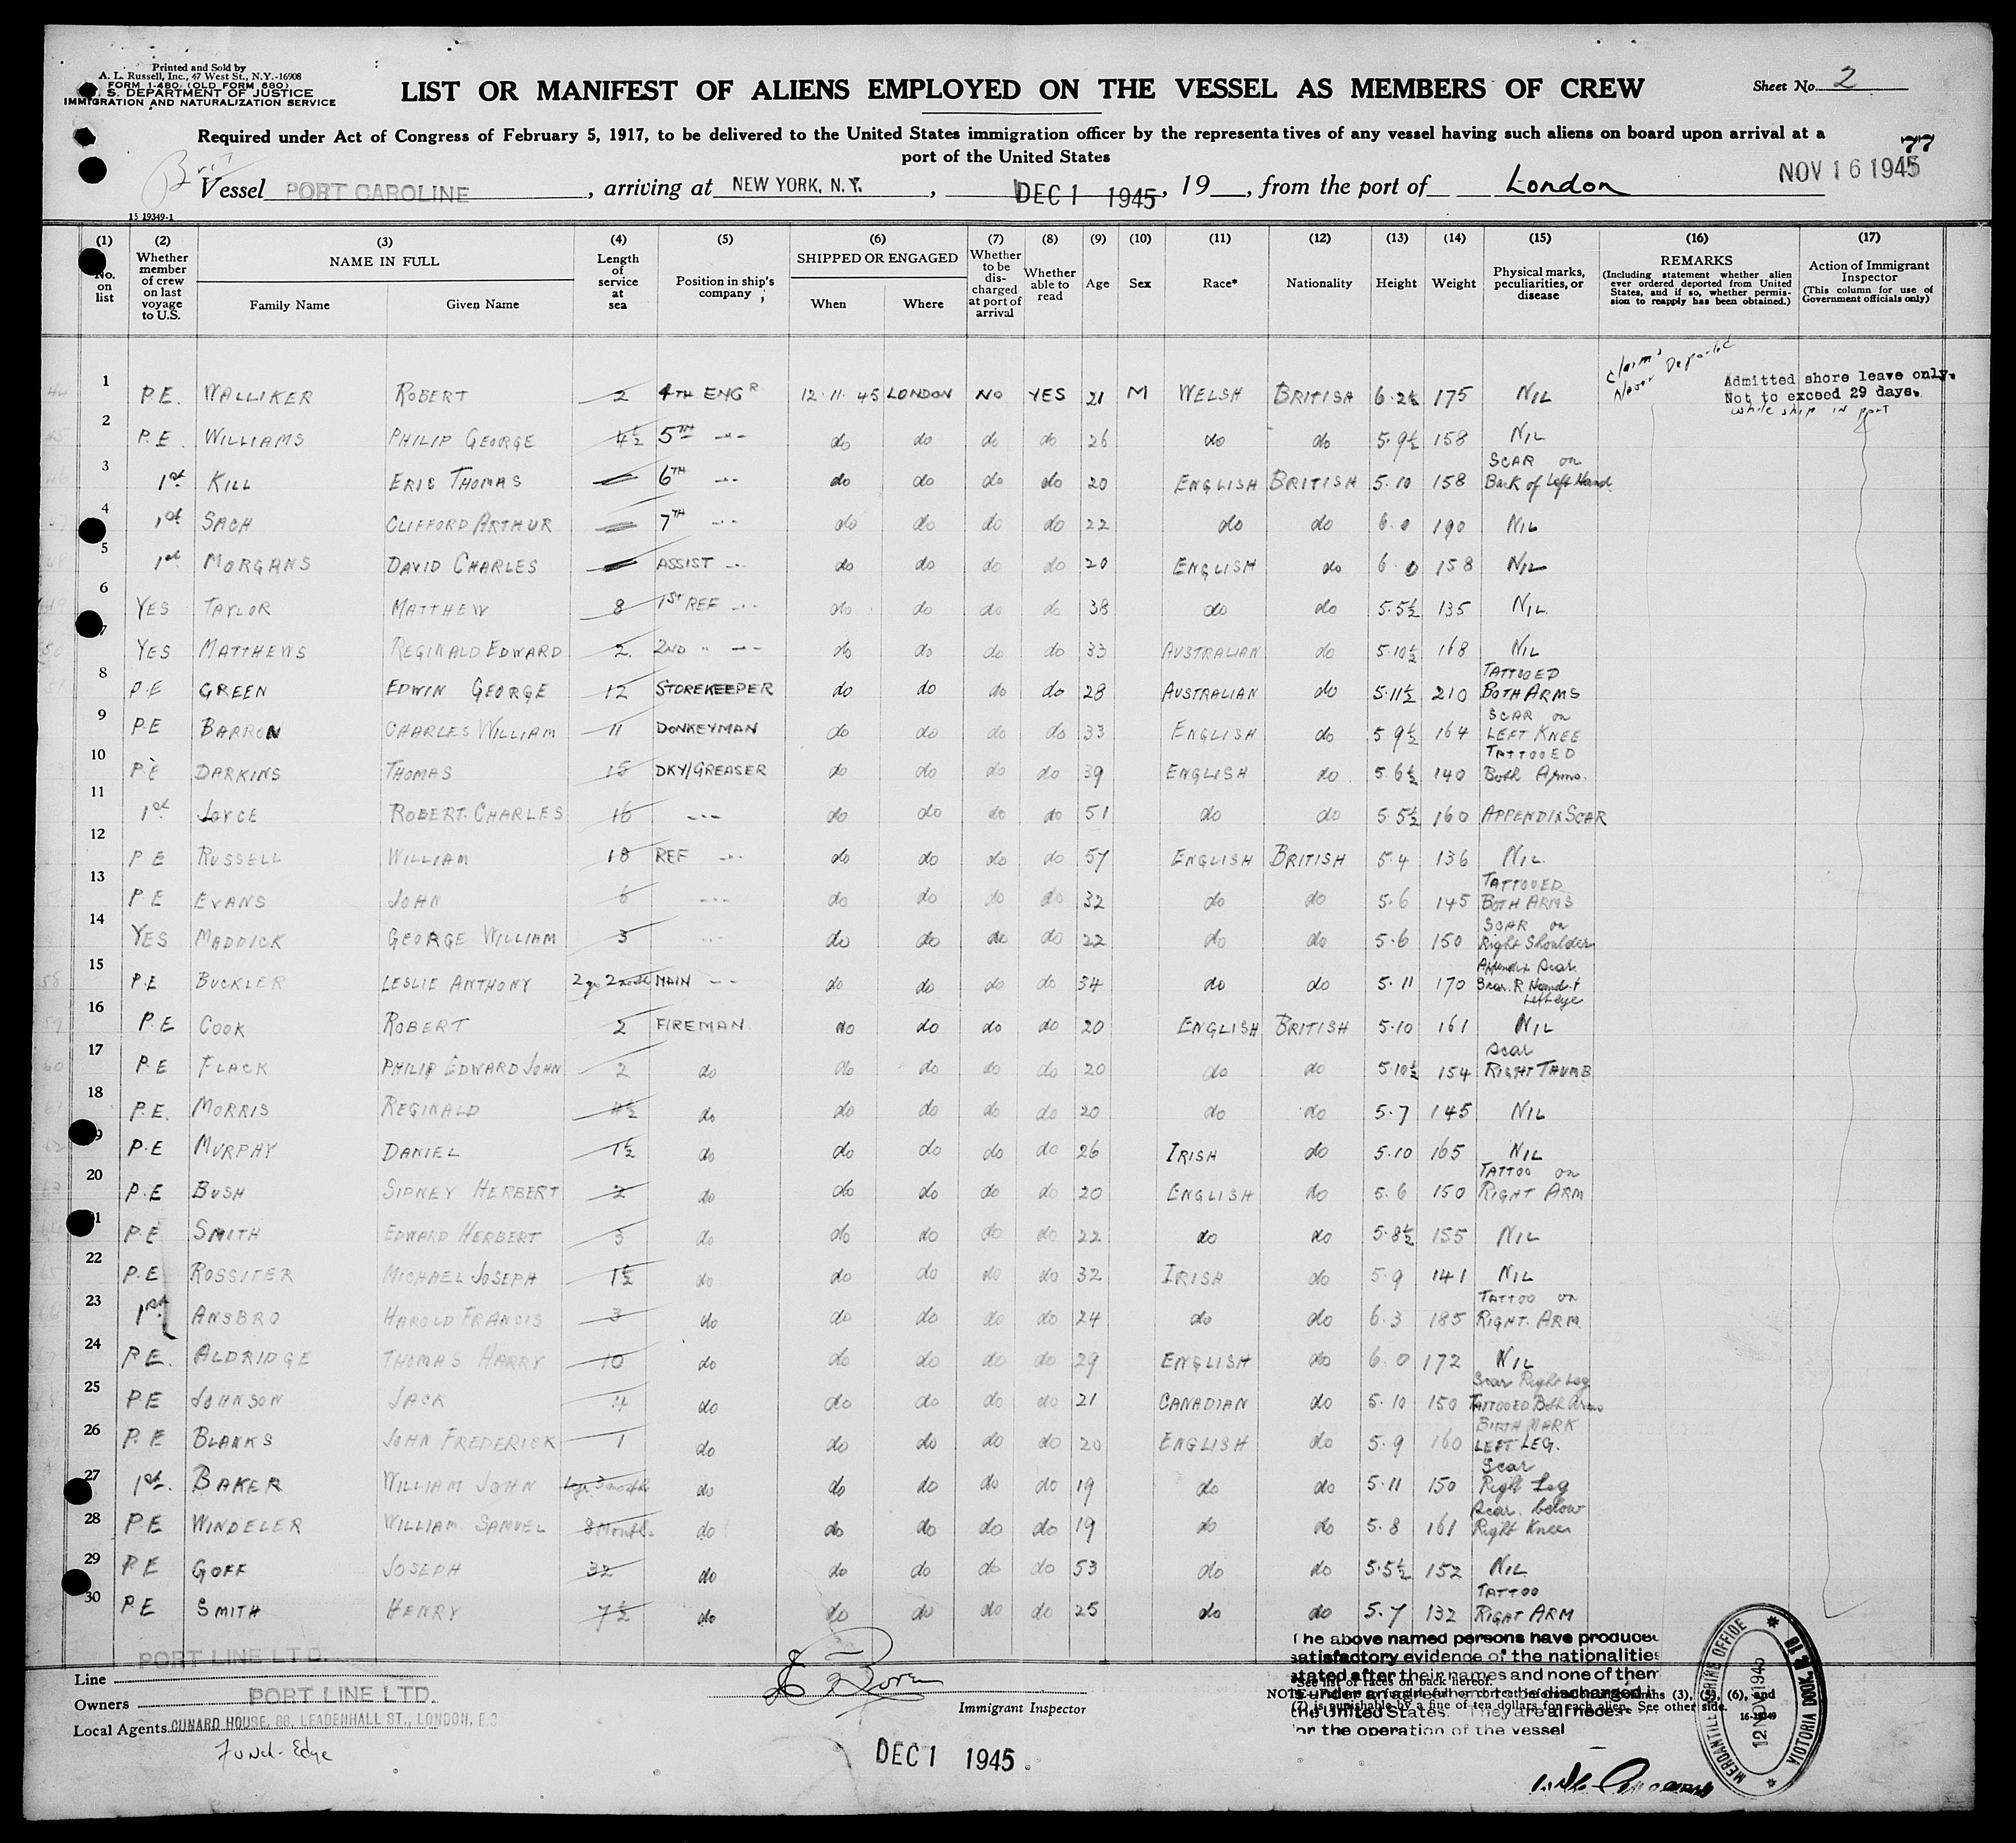 Printed and Sold by
A. L. Russell, Inc., 47 West St., N.Y.-16908
FORM I-480 (OLD FORM 680)
U. S. DEPARTMENT OF JUSTICE
IMMIGRATION AND NATURALIZATION SERVICE
LIST OR MANIFEST OF ALIENS EMPLOYED ON THE VESSEL AS MEMBERS OF CREW
Sheet No. 2
Required under Act of Congress of February 5, 1917, to be delivered to the United States immigration officer by the representatives of any vessel having such aliens on board upon arrival at a
port of the United States
77
Brit
Vessel PORT CAROLINE, arriving at NEW YORK, N.Y., DEC 1 1945, 19__, from the port of London
NOV 16 1945
15 19349-1
(1) (2) (3) (4) (5) (6) (7) (8) (9) (10) (11) (12) (13) (14) (15) (16) (17)
No. on list
Whether member of crew on last voyage to U.S.
NAME IN FULL
Family Name Given Name
Length of service at sea
Position in ship's company
SHIPPED OR ENGAGED
When Where
Whether to be discharged at port of arrival
Whether able to read
Age
Sex
Race*
Nationality
Height
Weight
Physical marks, peculiarities, or disease
REMARKS
(Including statement whether alien ever ordered deported from United States, and if so, whether permission to reapply has been obtained.)
Action of Immigrant Inspector
(This column for use of Government officials only)
Claims Never Deported
Admitted shore leave only.
Not to exceed 29 days.
while ship in port
1 P.E. WALLIKER ROBERT 2 4TH ENGR 12.11.45 LONDON NO YES 21 M WELSH BRITISH 6.2½ 175 NIL
2 P.E. WILLIAMS PHILIP GEORGE 4½ 5TH -"- do do do do 26 do do 5.9½ 158 NIL
3 1st KILL ERIC THOMAS 6TH -"- do do do do 20 ENGLISH BRITISH 5.10 158 SCAR on Back of Left Hand
4 1st SACH CLIFFORD ARTHUR 7TH -"- do do do do 22 do do 6.0 190 NIL
5 1st MORGANS DAVID CHARLES ASSIST -"- do do do do 20 ENGLISH do 6.0 158 NIL
6 YES TAYLOR MATTHEW 8 1ST REF -"- do do do do 38 do do 5.5½ 135 NIL
7 YES MATTHEWS REGINALD EDWARD 2 2ND " -"- do do do do 33 AUSTRALIAN do 5.10½ 168 NIL
8 P.E GREEN EDWIN GEORGE 12 STOREKEEPER do do do do 28 AUSTRALIAN do 5.11½ 210 TATTOOED BOTH ARMS
9 P.E BARRON CHARLES WILLIAM 11 DONKEYMAN do do do do 33 ENGLISH do 5 9½ 164 SCAR on LEFT KNEE
10 P.E DARKINS THOMAS 15 DKY/GREASER do do do do 39 ENGLISH do 5.6½ 140 TATTOOED Both Arms.
11 1st JOYCE ROBERT CHARLES 16 -"- do do do do 51 do do 5.5½ 160 APPENDIX SCAR
12 P E RUSSELL WILLIAM 18 REF -"- do do do do 57 ENGLISH BRITISH 5.4 136 NIL.
13 P E EVANS JOHN 6 -"- do do do do 32 do do 5.6 145 TATTOOED BOTH ARMS
14 YES MADDICK GEORGE WILLIAM 3 -"- do do do do 22 do do 5.6 150 SCAR on Right Shoulder
15 P.E BUCKLER LESLIE ANTHONY 2 yr 2 month MAIN -"- do do do do 34 do do 5.11 170 Appendix Scar. Scar R Hand + Left eye
16 P.E COOK ROBERT 2 FIREMAN No do do do 20 ENGLISH BRITISH 5.10 161 NIL
17 P.E FLACK PHILIP EDWARD JOHN 2 do do do do do 20 do do 5.10½ 154 Scar RIGHT THUMB
18 P.E. MORRIS REGINALD 4½ do do do do do 20 do do 5.7 145 NIL
19 P.E MURPHY DANIEL 1½ do do do do do 26 IRISH do 5.10 165 NIL
20 P.E BUSH SIDNEY HERBERT 2 do do do do do 20 ENGLISH do 5.6 150 TATTOO on RIGHT ARM
21 P.E SMITH EDWARD HERBERT 3 do do do do do 22 do do 5.8½ 155 NIL
22 P.E ROSSITER MICHAEL JOSEPH 1½ do do do do do 32 IRISH do 5.9 141 NIL
23 1st ANSBRO HAROLD FRANCIS 3 do do do do do 24 do do 6.3 185 TATTOO on RIGHT ARM
24 P.E. ALDRIDGE THOMAS HARRY 10 do do do do do 29 ENGLISH do 6.0 172 NIL
25 P.E JOHNSON JACK 4 do do do do do 21 CANADIAN do 5.10 150 Scar Right Leg TATTOOED Both Arms
26 P.E BLANKS JOHN FREDERICK 1 do do do do do 20 ENGLISH do 5.9 160 BIRTH MARK LEFT LEG.
27 1st. BAKER WILLIAM JOHN 1 yr 3 month do do do do do 19 do do 5.11 150 Scar Right Leg
28 P.E WINDELER WILLIAM SAMUEL 8 Months do do do do do 19 do do 5.8 161 Scar below Right Knee
29 P.E GOFF JOSEPH 32 do do do do do 53 do do 5.5½ 152 NIL
30 P.E SMITH HENRY 7½ do do do do do 25 do do 5.7 132 TATTOO RIGHT ARM
PORT LINE LTD.
Line
Owners PORT LINE LTD.
Local Agents CUNARD HOUSE, 88, LEADENHALL ST., LONDON, E.C
Funch-Edye
Immigrant Inspector
DEC 1 1945
The above named persons have produced
satisfactory evidence of the nationalities
stated after their names and none of them
is under an agreement to be discharged in
the United States. They are all necess
for the operation of the vessel
*See list of races on back hereof.
(3), (5), (6), and
(7) is punishable by a fine of ten dollars for each alien. See other side.
16-19349
MERCANTILE MARINE OFFICE
12 NOV 1945
VICTORIA DOCK, E 16